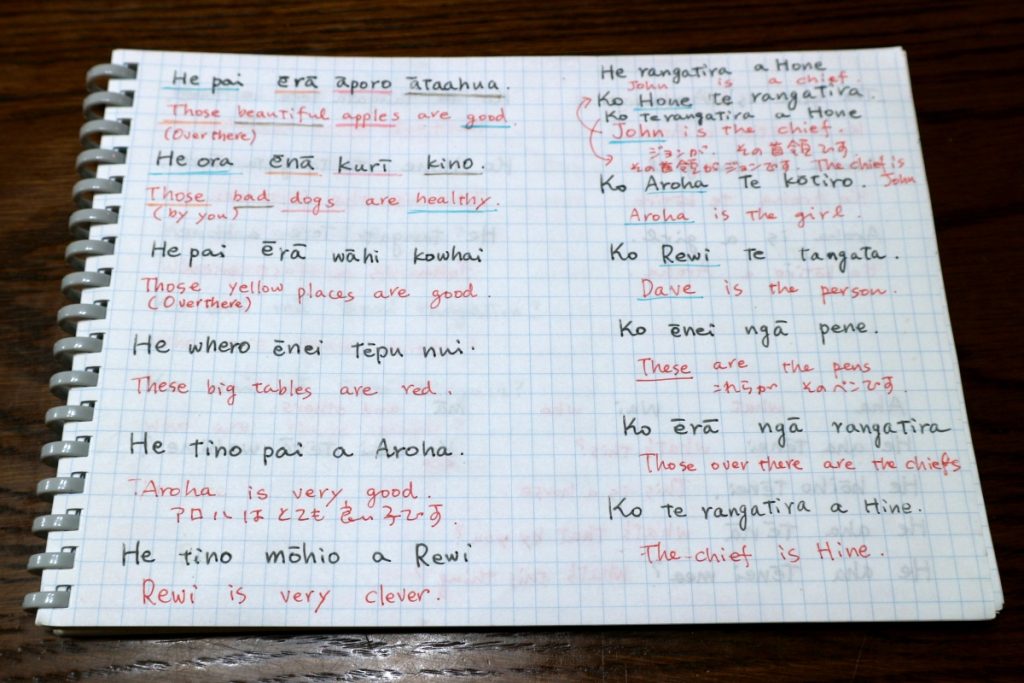 He pai ērā āporo ātaahua.
Those beautiful apples are good.
(Over there)
He ora ēnā kurī kino.
Those bad dogs are healthy.
(by you)
He pai ērā wāhi kowhai
Those yellow places are good.
(Over there)
He whero ēnei tēpu nui.
These big tables are red.
He tino pai a Aroha.
Aroha is very good.
アロハはとても良い子です.
He tino mōhio a Rewi
Rewi is very clever.
He rangatira a Hone
John is a chief.
Ko Hone te rangatira.
Ko te rangatira a Hone
John is the chief.
ジョンが、その首領です.
その首領がジョンです. The chief is John
Ko Aroha Te kōtiro.
Aroha is the girl.
Ko Rewi te tangata.
Dave is the person.
Ko ēnei ngā pene.
These are the pens
これらが そのペンです.
Ko ērā ngā rangatira
Those over there are the chiefs
Ko te rangatira a Hine.
The chief is Hine.